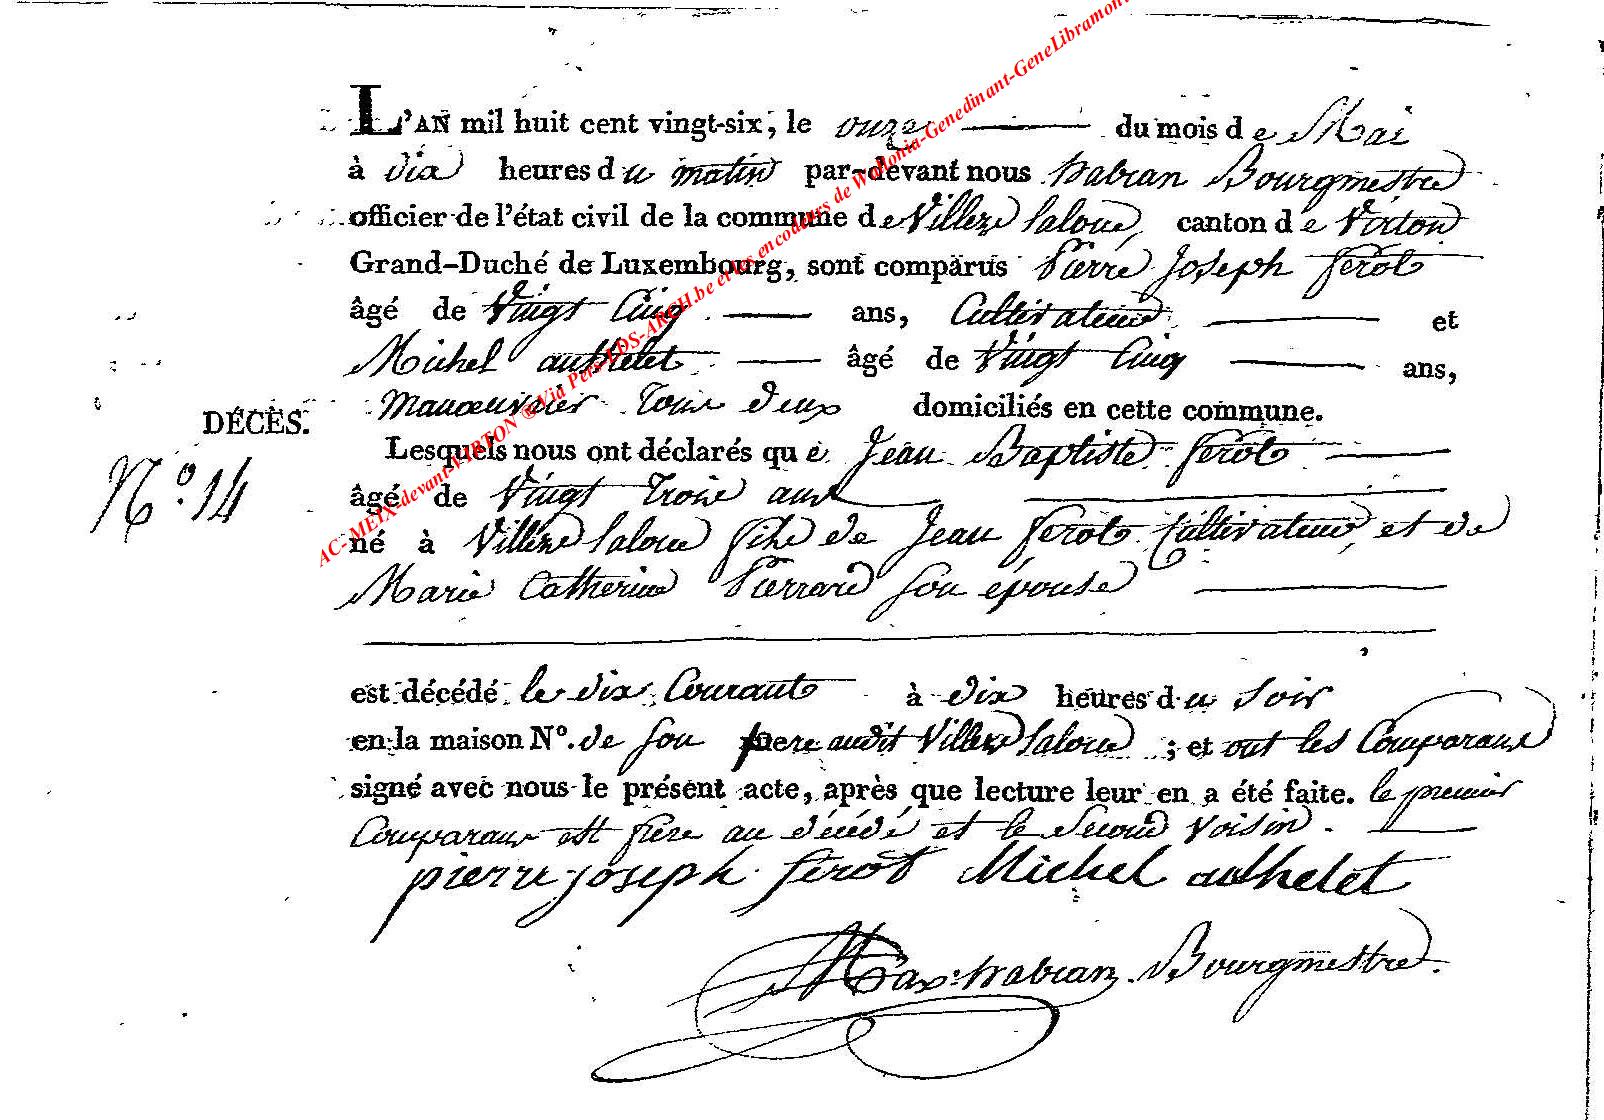 L'AN mil huit cent vingt-six, le onze du mois de Mai
à dix heures du matin par-devant nous habran Bourgmestre
officier de l'état civil de la commune de Villers laloue, canton de Virton
Grand-Duché de Luxembourg, sont comparus Pierre Joseph ferot
âgé de Vingt Cinq ans, Cultivateur et
Michel authelet âgé de Vingt Cinq ans,
Manoeuvrier tous deux domiciliés en cette commune.
DÉCÈS.
Lesquels nous ont déclarés que Jean Baptiste ferot
N.º 14
âgé de Vingt trois ans
né à Villers laloue fils de Jean ferot Cultivateur, et de
Marie Catherine Pierrard son épouse
est décédé le dix Courant à dix heures du soir
en la maison Nº. de son pere audit Villers laloue ; et ont les Comparans
signé avec nous le présent acte, après que lecture leur en a été faite. le premier
Comparans est frere au décédé et le second voisin.
pierre joseph ferot Michel authelet
Max: habran Bourgmestre.
AC-MEIX-devant-VIRTON ® Via Pers-LDS-ARCH.be et les encodeurs de Wallonia-Genedinant-GeneLibramon